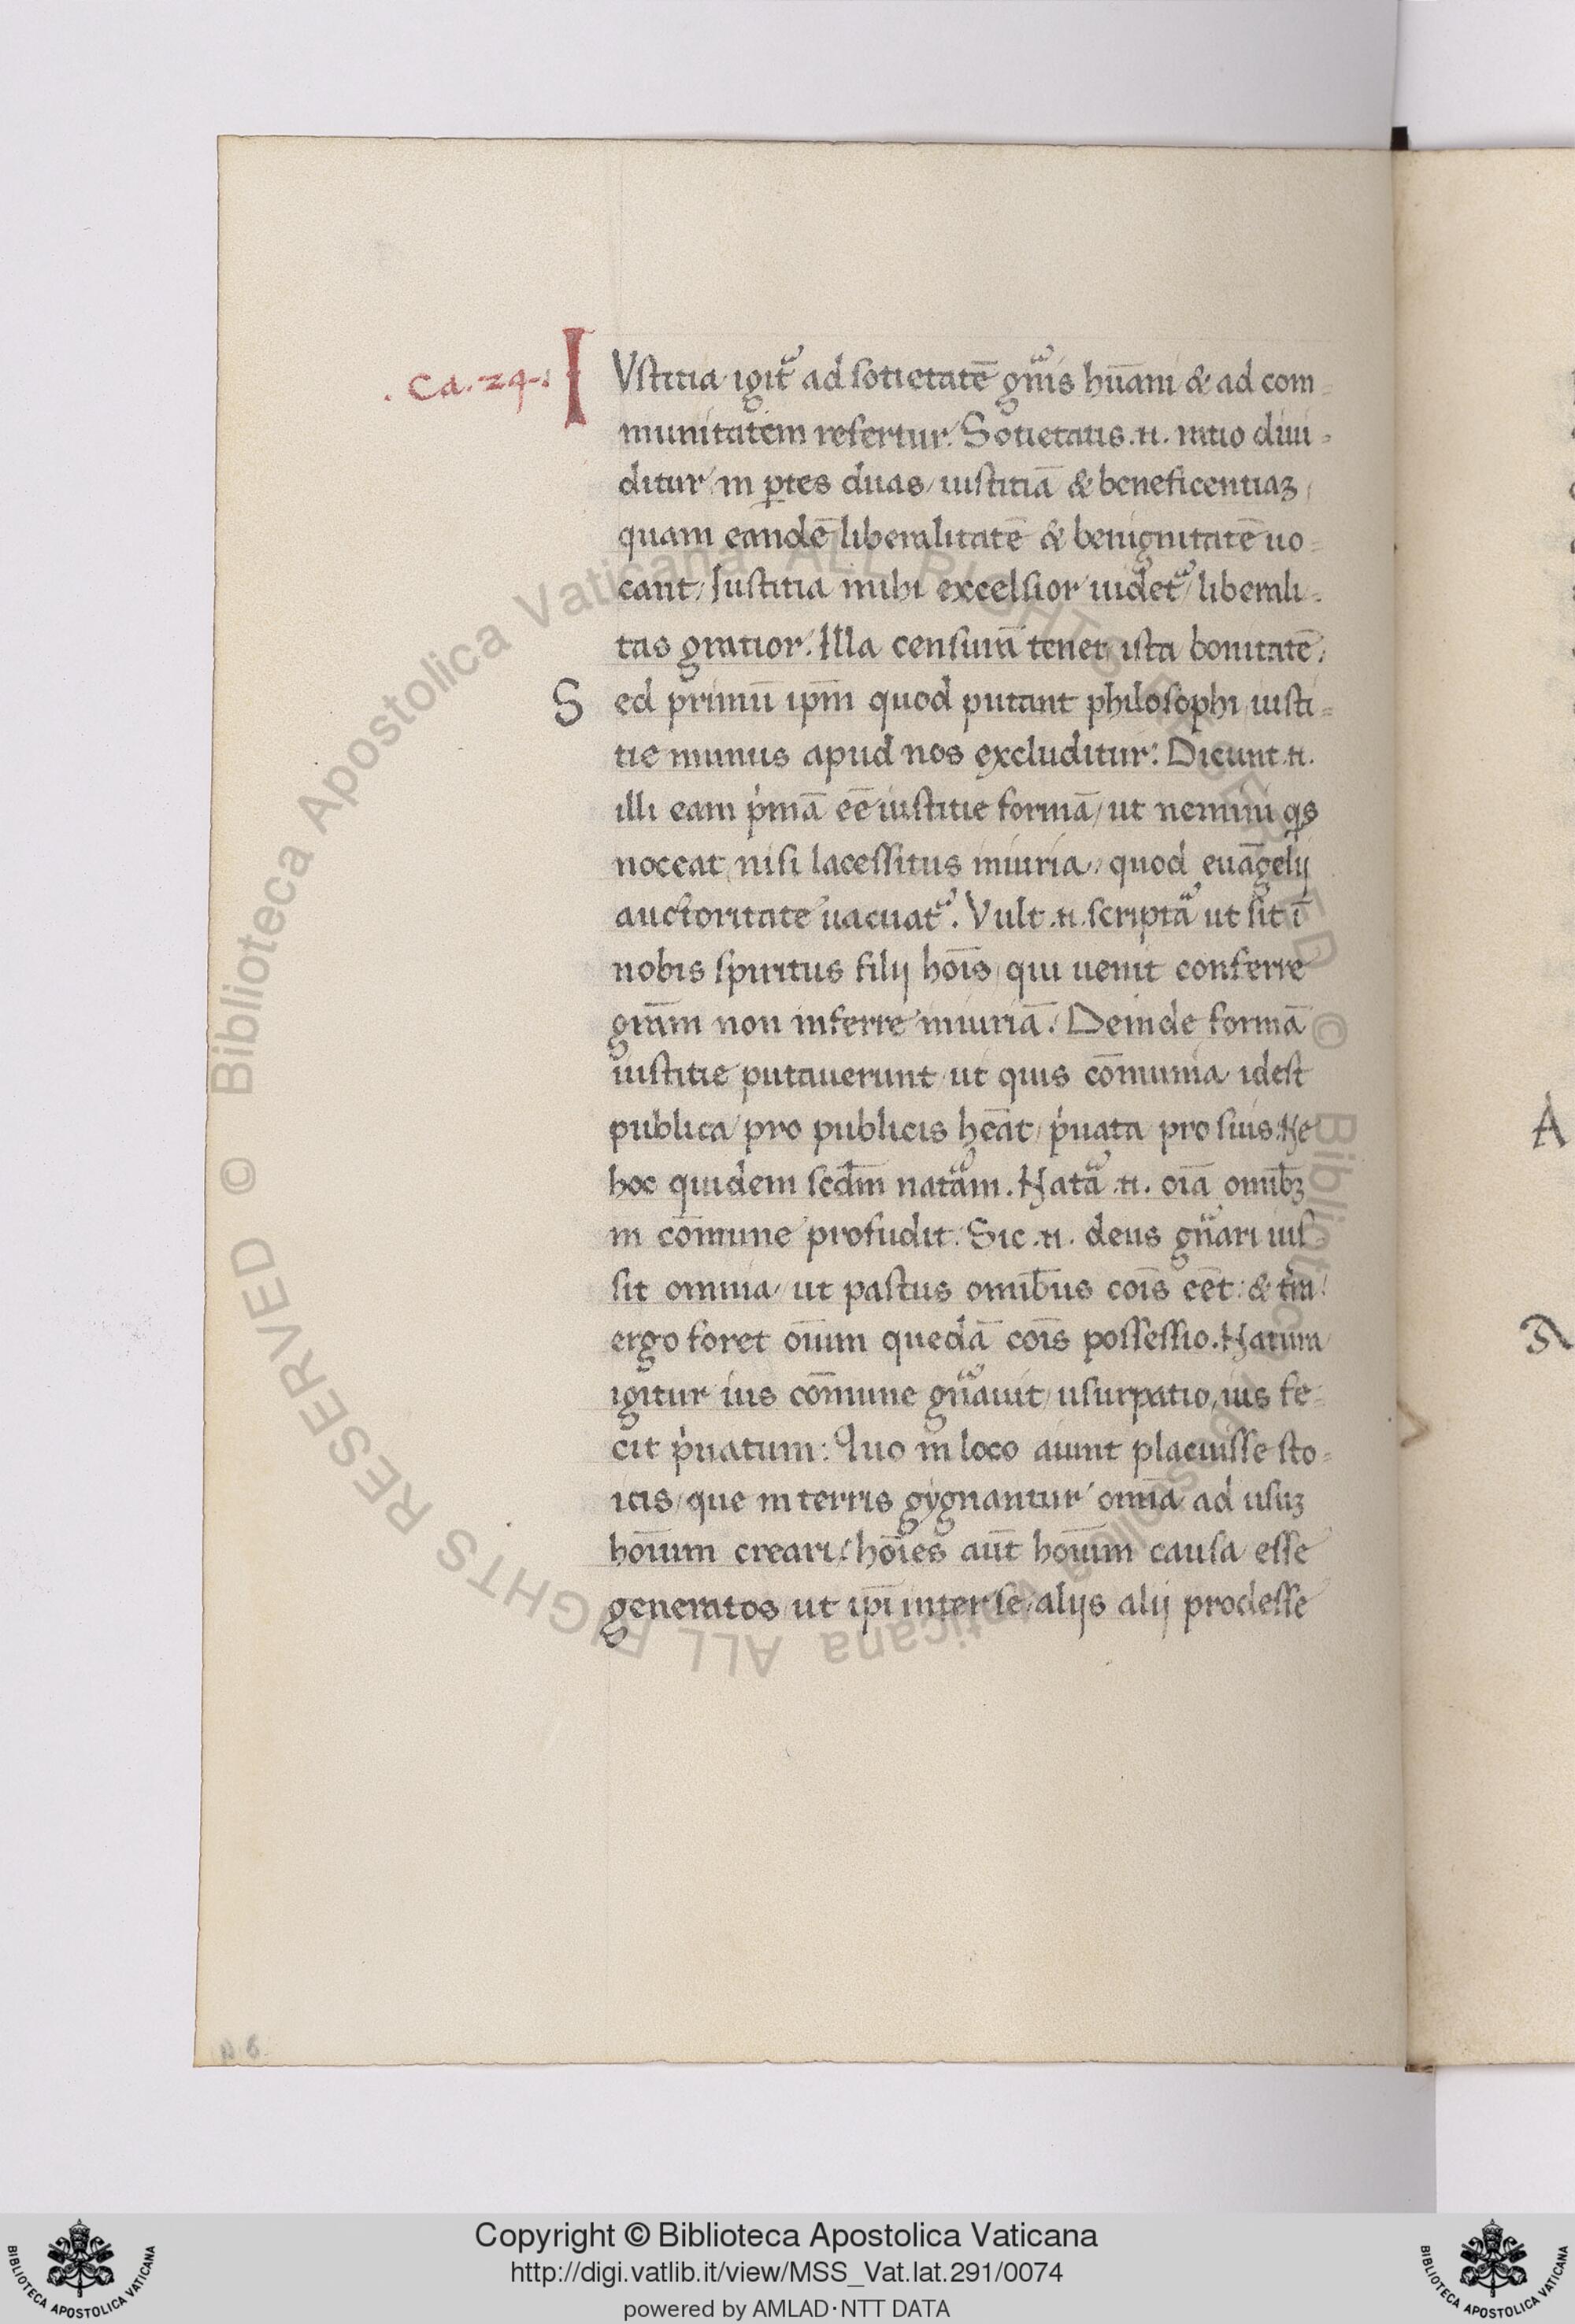 .Ca.24.
IVstitia igit᷑ ad sotietatē gn̄is hūani & ad com-
munitatem refertur. Sotietatis .n. ratio diui-
ditur in ꝑtes duas, iustitiā & beneficentiaꝫ,
quam eandē liberalitatē & benignitatē uo-
cant, Iustitia mihi excelsior uidet᷑, liberali-
tas gratior. Illa censurā tenet, ista bonitatē.
Sed primū ipm̄ quod putant philosophi iusti-
tie munus apud nos excluditur: Dicunt .n.
illi eam pͥmā eē iustitie formā, ut nemini qs
noceat nisi lacessitus iniuria, quod euāgelij
auctoritate uacuat᷑. Vult .n. scriptᷓa ut sit ī
nobis spiritus filij hoīs, qui uenit conferre
grām non inferre iniuriā. Deinde formā
iustitie putauerunt ut quis cōmunia idest
publica pro publicis hēat, pͥuata pro suis. Ne
hoc quidem scdm̄ natᷓam. Natᷓa .n. oīa omībꝫ
in cōmune profudit. Sic .n. deus gn̄ari ius-
sit omnia, ut pastus omībus coīs eēt: & t̄ra
ergo foret oīum quedā coīs possessio. Natura
igitur ius cōmune gn̄auit, usurpatio, ius fe-
cit pͥuatum: Quo in loco aiunt placuisse sto-
icis, que in terris gygnantur omīa ad usuꝫ
hoīum creari: hoīes aūt hoīum causa esse
generatos, ut ip̄i inter se, alijs alij prodesse
A
Copyright © Biblioteca Apostolica Vaticana
http://digi.vatlib.it/view/MSS_Vat.lat.291/0074
powered by AMLAD·NTT DATA
BIBLIOTECA APOSTOLICA VATICANA
BIBLIOTECA APOSTOLICA VATICANA
© Biblioteca Apostolica Vaticana ALL RIGHTS RESERVED © Biblioteca Apostolica Vaticana ALL RIGHTS RESERVED